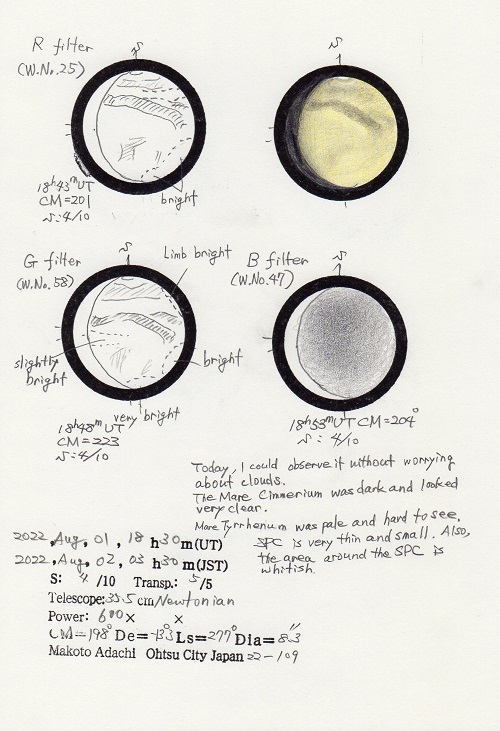 R filter
(W.No.25)
S
18h43mUT
CM=201
S:4/10
bright
S
G filter
(W.No.58)
S
Limb bright
slightly
bright
bright
very bright
18h48mUT
CM=223
S:4/10
B filter
(W.No.47)
S
18h53mUT CM=204°
S: 4/10
Today, I could observe it without worrying
about clouds.
The Mare Cimmerium was dark and looked
very clear.
Mare Tyrrhenum was pale and hard to see.
SPC is very thin and small. Also,
the area around the SPC is
whitish.
2022, Aug, 01, 18 h30m(UT)
2022, Aug, 02, 03 h30m(JST)
S: 4/10 Transp.: 5/5
Telescope:35.5cm Newtonian
Power: 600× ×
CM=198° De=-13.3 Ls=277° Dia=8.3"
Makoto Adachi Ohtsu City Japan 22-109